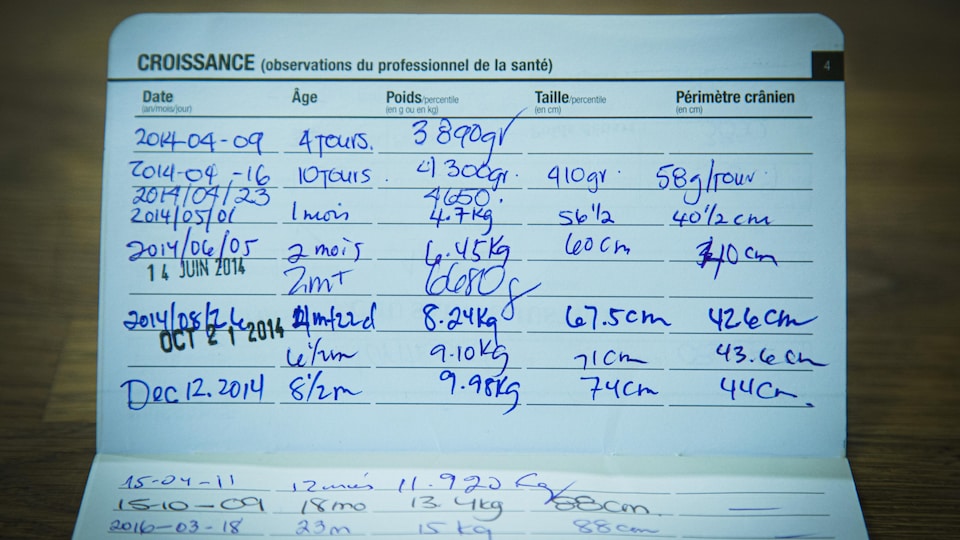 CROISSANCE (observations du professionnel de la santé) 4
Date Âge Poids/percentile Taille/percentile Périmètre crânien
(an/mois/jour) (en g ou en kg) (en cm) (en cm)
2014-04-09 4 jours. 3890gr
2014-04-16 10 jours. 4300gr. 410gr. 58g/jour.
2014/04/23 4650.
2014/05/01 1 mois 4.7kg 56 1/2 40 1/2 cm
2014/06/05 2 mois 6.45kg 60 cm 40 cm
14 JUIN 2014 2m+ 6680g
2014/08/26 4m+22d 8.24kg 67.5cm 42.6cm
OCT 21 2014 6 1/2m 9.10kg 71cm 43.6cm
Dec 12. 2014 8 1/2m 9.98kg 74cm 44cm.
15-04-11 12 mois 11.920 kg
15-10-09 18mo 13.4kg 88cm. —
2016-03-18 23m 15 kg 88cm —